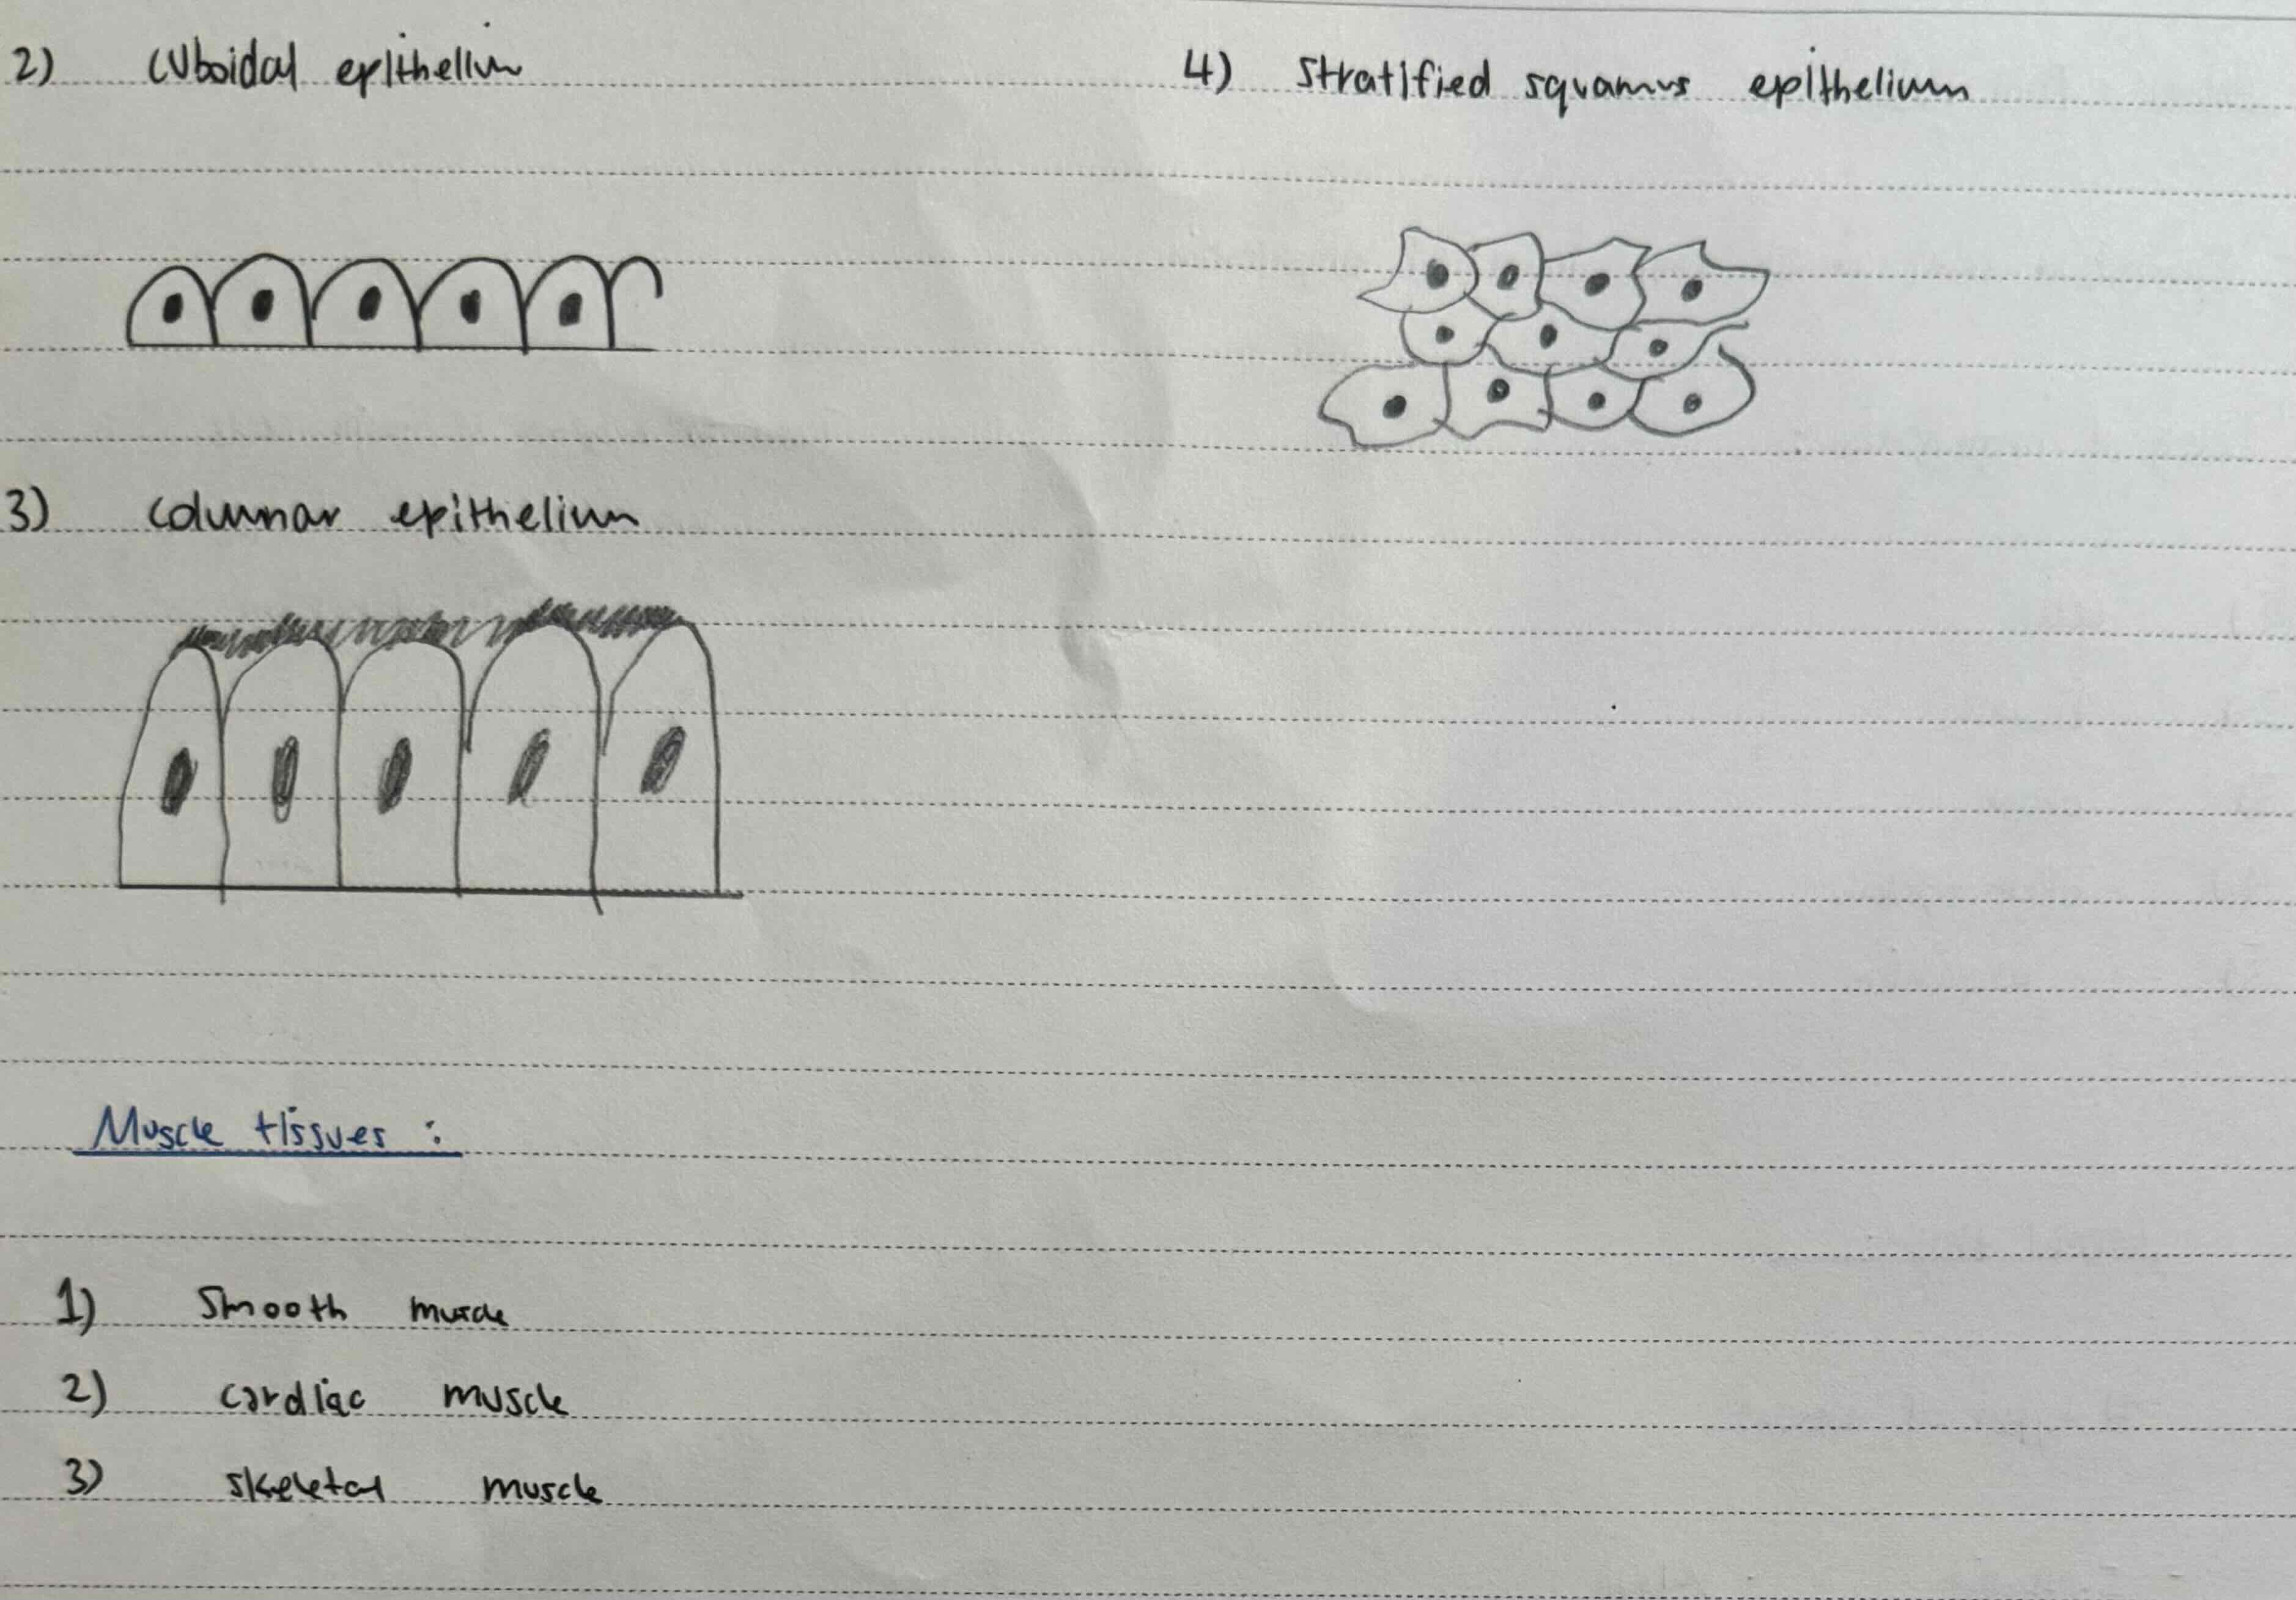 2) Cuboidal epithelium
4) Stratified squamus epithelium
3) Columnar epithelium
Muscle tissues :
1) Smooth muscle
2) cardiac muscle
3) skeletal muscle